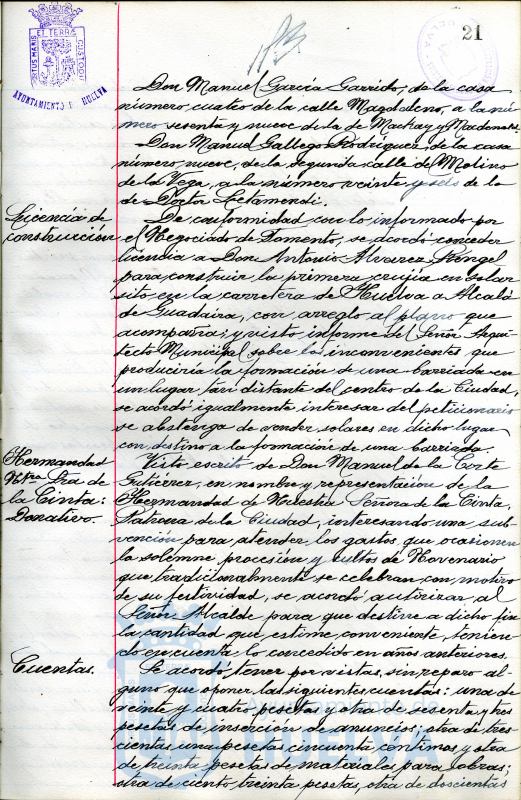 21
PORTUS MARIS ET TERRÆ CUSTODIA
AYUNTAMIENTO DE HUELVA
Don Manuel García Garrido, de la casa
número cuatro de la calle Magdaleno, a la nú-
mero sesenta y nueve de la de Mackay y Macdonald.
Don Manuel Gallego Rodríguez, de la casa
número nueve, de la segunda calle del Molino
de la Vega, a la número veinte y seis de la
de Doctor Letamendi.
Licencia de
construcción
De conformidad con lo informado por
el Negociado de Fomento, se acordó conceder
licencia a Don Antonio Alvarez Rangel
para construir la primera crujía en solar
sito en la carretera de Huelva a Alcalá
de Guadaira, con arreglo al plano que
acompaña; y visto informe del Señor Arqui-
tecto Municipal sobre los inconvenientes que
produciría la formación de una barriada en
un lugar tan distante del centro de la Ciudad,
se acordó igualmente interesar del peticionario
se abstenga de vender solares en dicho lugar
con destino a la formación de una barriada.
Hermandad
Ntra Sra de
la Cinta:
Donativo.
Visto escrito de Don Manuel de la Corte
Gutiérrez, en nombre y representación de la
Hermandad de Nuestra Señora de la Cinta,
Patrona de la Ciudad, interesando una sub-
vención para atender los gastos que ocasionen
la solemne procesión y cultos de Novenario
que tradicionalmente se celebran con motivo
de su festividad, se acordó autorizar al
Señor Alcalde para que destine a dicho fin
la cantidad que estime conveniente, tenien-
do en cuenta lo concedido en años anteriores.
Cuentas.
Se acordó tener por vistas, sin reparo al-
guno que oponer, las siguientes cuentas: una de
veinte y cuatro pesetas y otra de sesenta y tres
pesetas de inserción de anuncios; otra de tres-
cientas una pesetas cincuenta céntimos y otra
de treinta pesetas de materiales para obras;
otra de ciento treinta pesetas, otra de doscientas
Ayuntamiento de
HUELVA